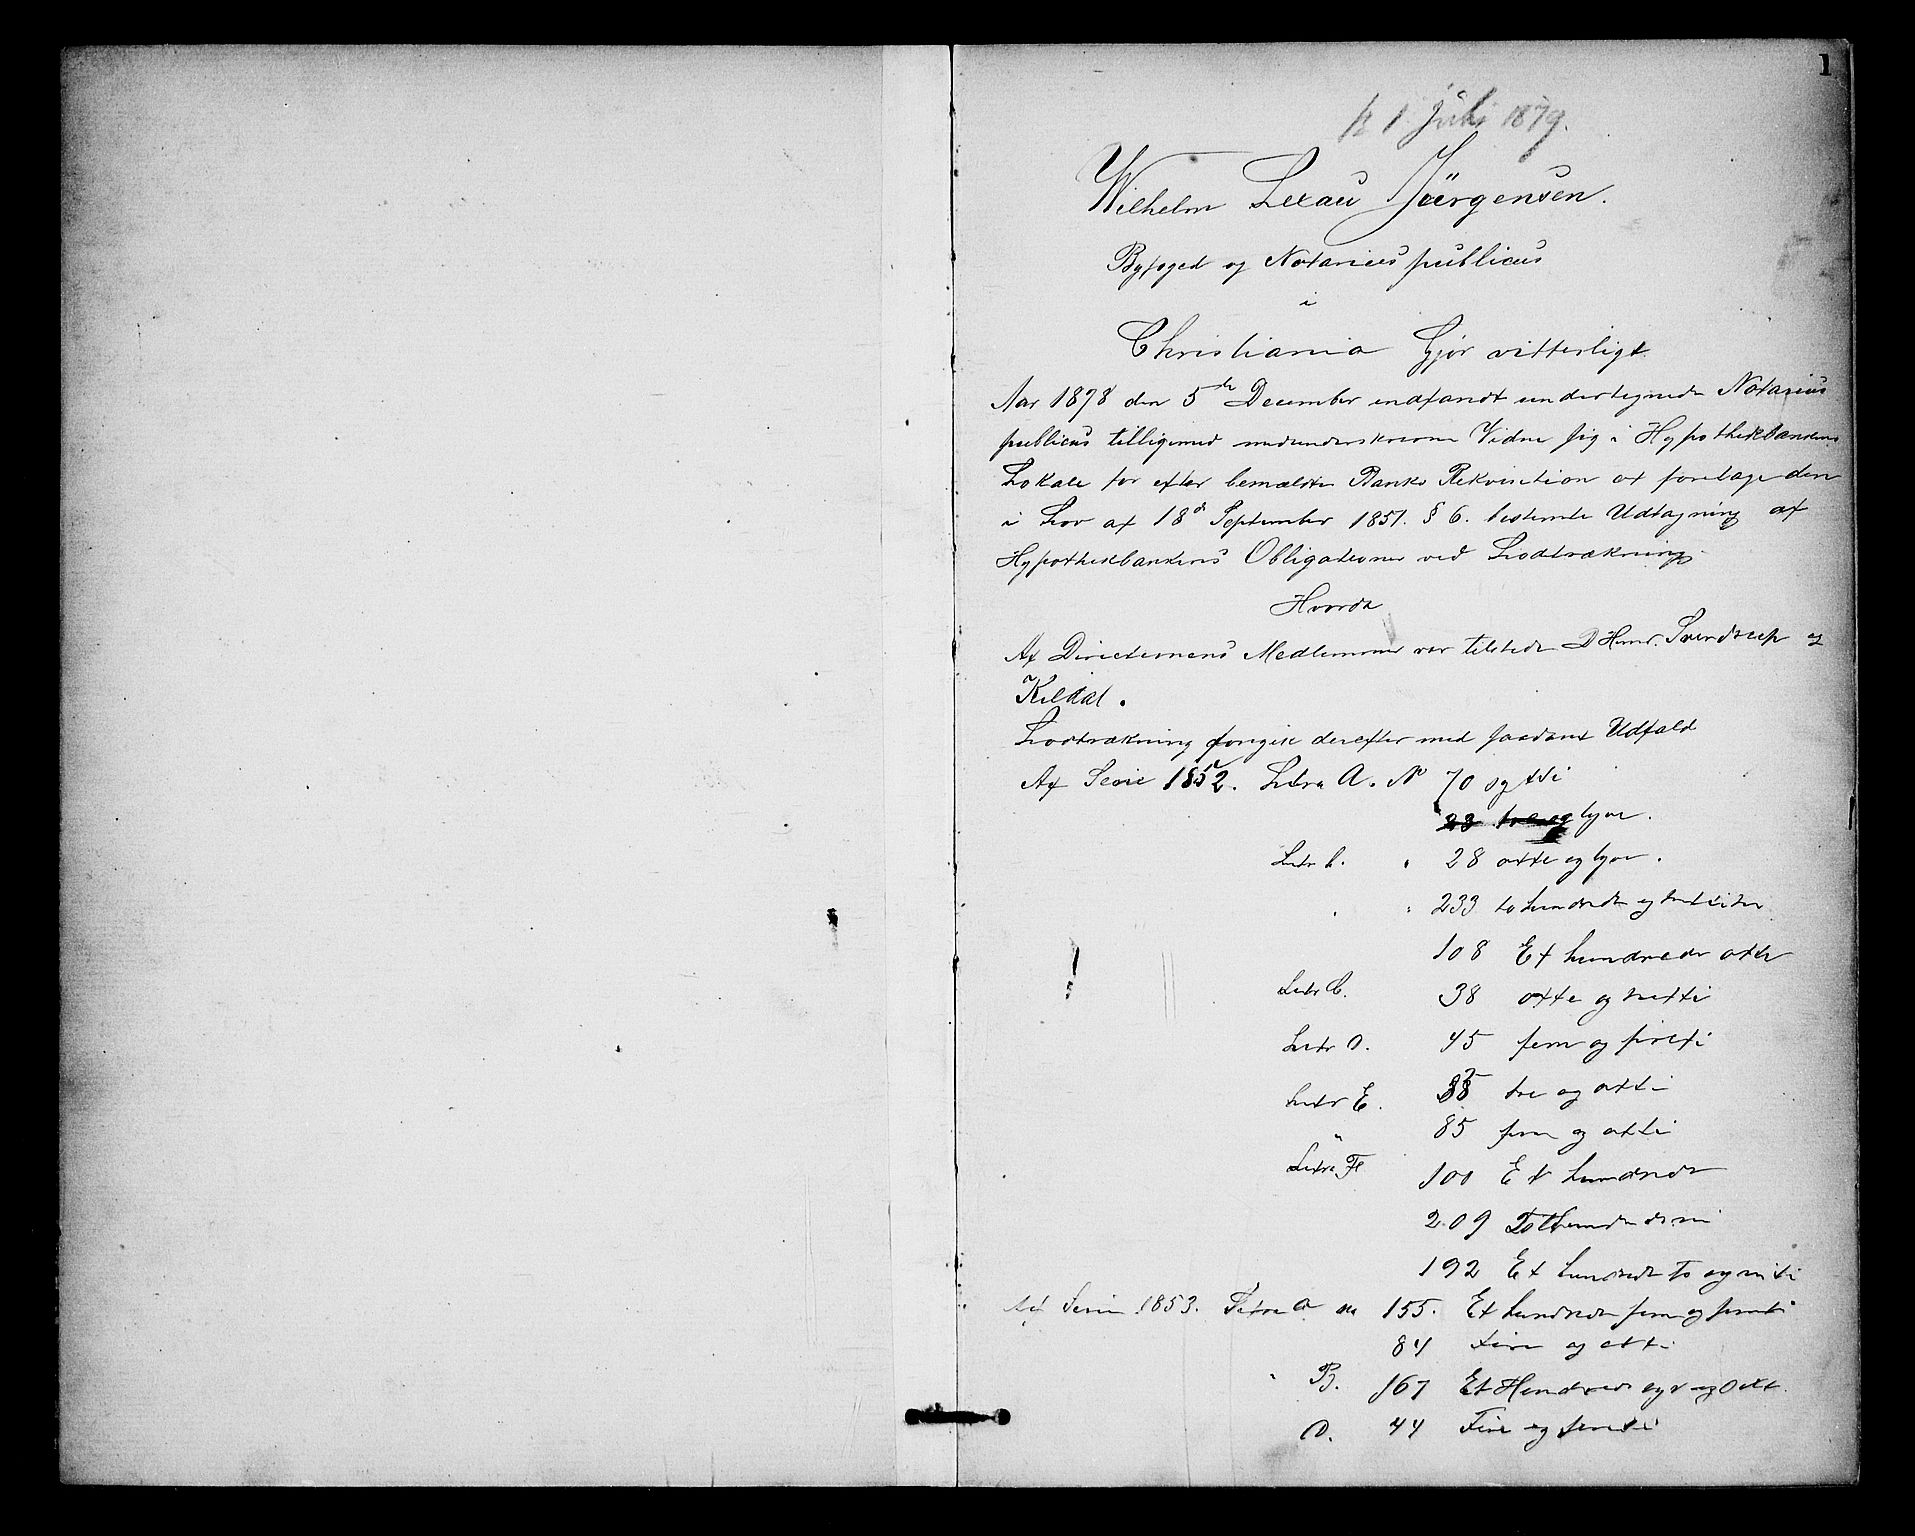 1
1 Juli 1879.
Wilhelm Lexau Jürgensen.
Byfoged og Notarius publicus
i
Christiania Gjør vitterligt
Aar 1878 den 5te December indfandt undertegnede Notarius
publicus tilligemed medunderskrevne Vidne sig i Hypothekbankens
Lokale for efter bemældte Banks Rekvisition at foretage den
i Lov af 18de September 1851. § 6. bestemte Udtagning af
Hypothekbankens Obligationer ved Lodtrækning
Hvorda
Af Directionens Medlemmer var tilstede D'Herrer. Sverdrup og
Kildal.
Lodtrækning foregik derefter med saadant Udfald
Af Serie 1852. Litra A. No 70 sytti
23 tre og tyve.
Litr 28 otte og tyve.
233 to hundrede og tretti tre
108 Et hundrede otte
Litr C. 38 otte og tretti
Litr D. 45 fem og firti
Litr E. tre og otti
85 fem og otti
Litra F 100 Et hundrede
209 To Hundrede ni
192 Et hundrede to og nitti
Af Serie 1853. Litra A No 155. Et hundrede fem og femti
84 Fire og otti
B. 167 Et Hundrede syv og
D. 44 Fire og firti